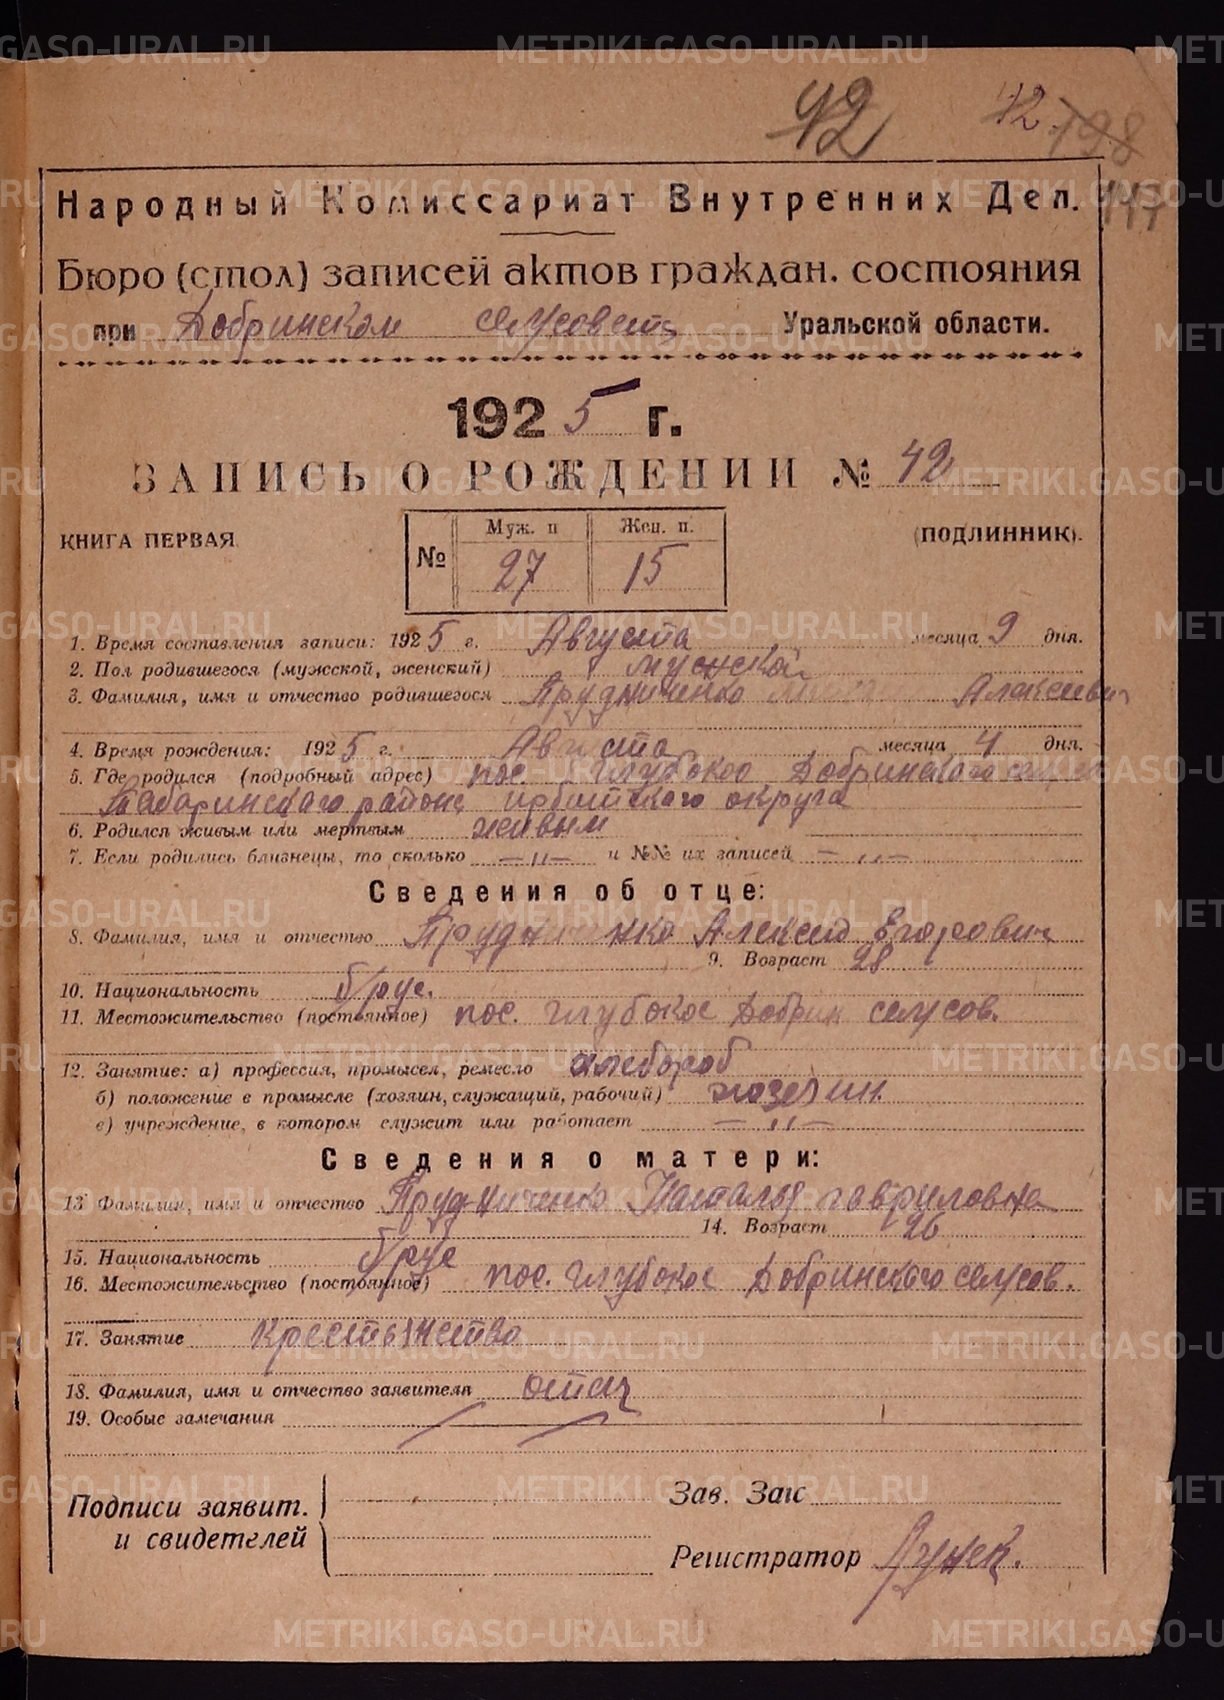 42 42 198
147
Народный Комиссариат Внутренних Дел.
Бюро (стол) записей актов граждан. состояния
при Добринском селусовете Уральской области.
1925 г.
ЗАПИСЬ О РОЖДЕНИИ № 42
КНИГА ПЕРВАЯ (ПОДЛИННИК).
№ Муж. п Жен. п.
27 15
1. Время составления записи: 1925 г. Августа месяца 9 дня.
2. Пол родившегося (мужской, женский) мужской
3. Фамилия, имя и отчество родившегося Прудниченко Алексеевич
4. Время рождения: 1925 г. Августа месяца 4 дня.
5. Где родился (подробный адрес) пос. Глубокое Добринского
Табаринского района ирбитского округа
6. Родился живым или мертвым живым
7. Если родились близнецы, то сколько — „ — и №№ их записей — „ —
Сведения об отце:
8. Фамилия, имя и отчество Алексей Егорович
9. Возраст 28
10. Национальность б/рус.
11. Местожительство (постоянное) пос. Глубокое Добрин селусов.
12. Занятие: а) профессия, промысел, ремесло хлебороб
б) положение в промысле (хозяин, служащий, рабочий)
в) учреждение, в котором служит или работает — „ —
Сведения о матери:
13 Фамилия, имя и отчество Прудниченко Наталья гавриловна
14. Возраст 26
15. Национальность б/рус
16. Местожительство (постоянное) пос. Глубокое Добринского селусов.
17. Занятие крестьянство
18. Фамилия, имя и отчество заявителя отец
19. Особые замечания
Подписи заявит. Зав. Загс
и свидетелей
Регистратор
METRIKI.GASO-URAL.RU